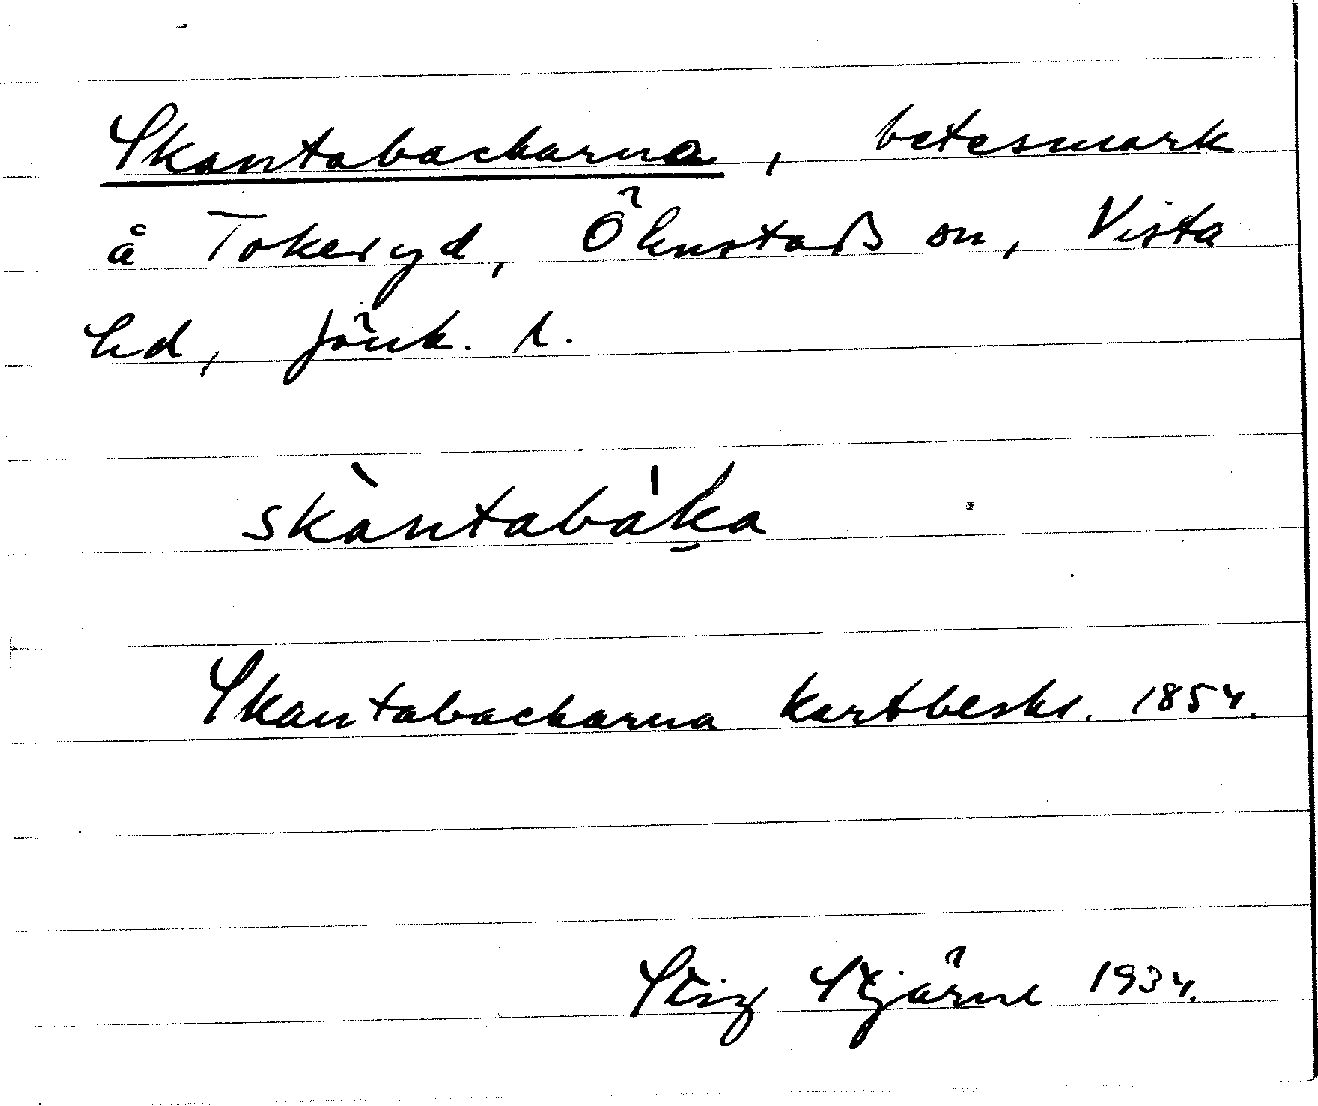 Skantabackarna, betesmark
å Tokeryd, Ölmstads sn, Vista
hd, Jönk. l.
skàntabáka
Skantabackarna kartbeskr. 1854.
Stig Stjärne 1934.